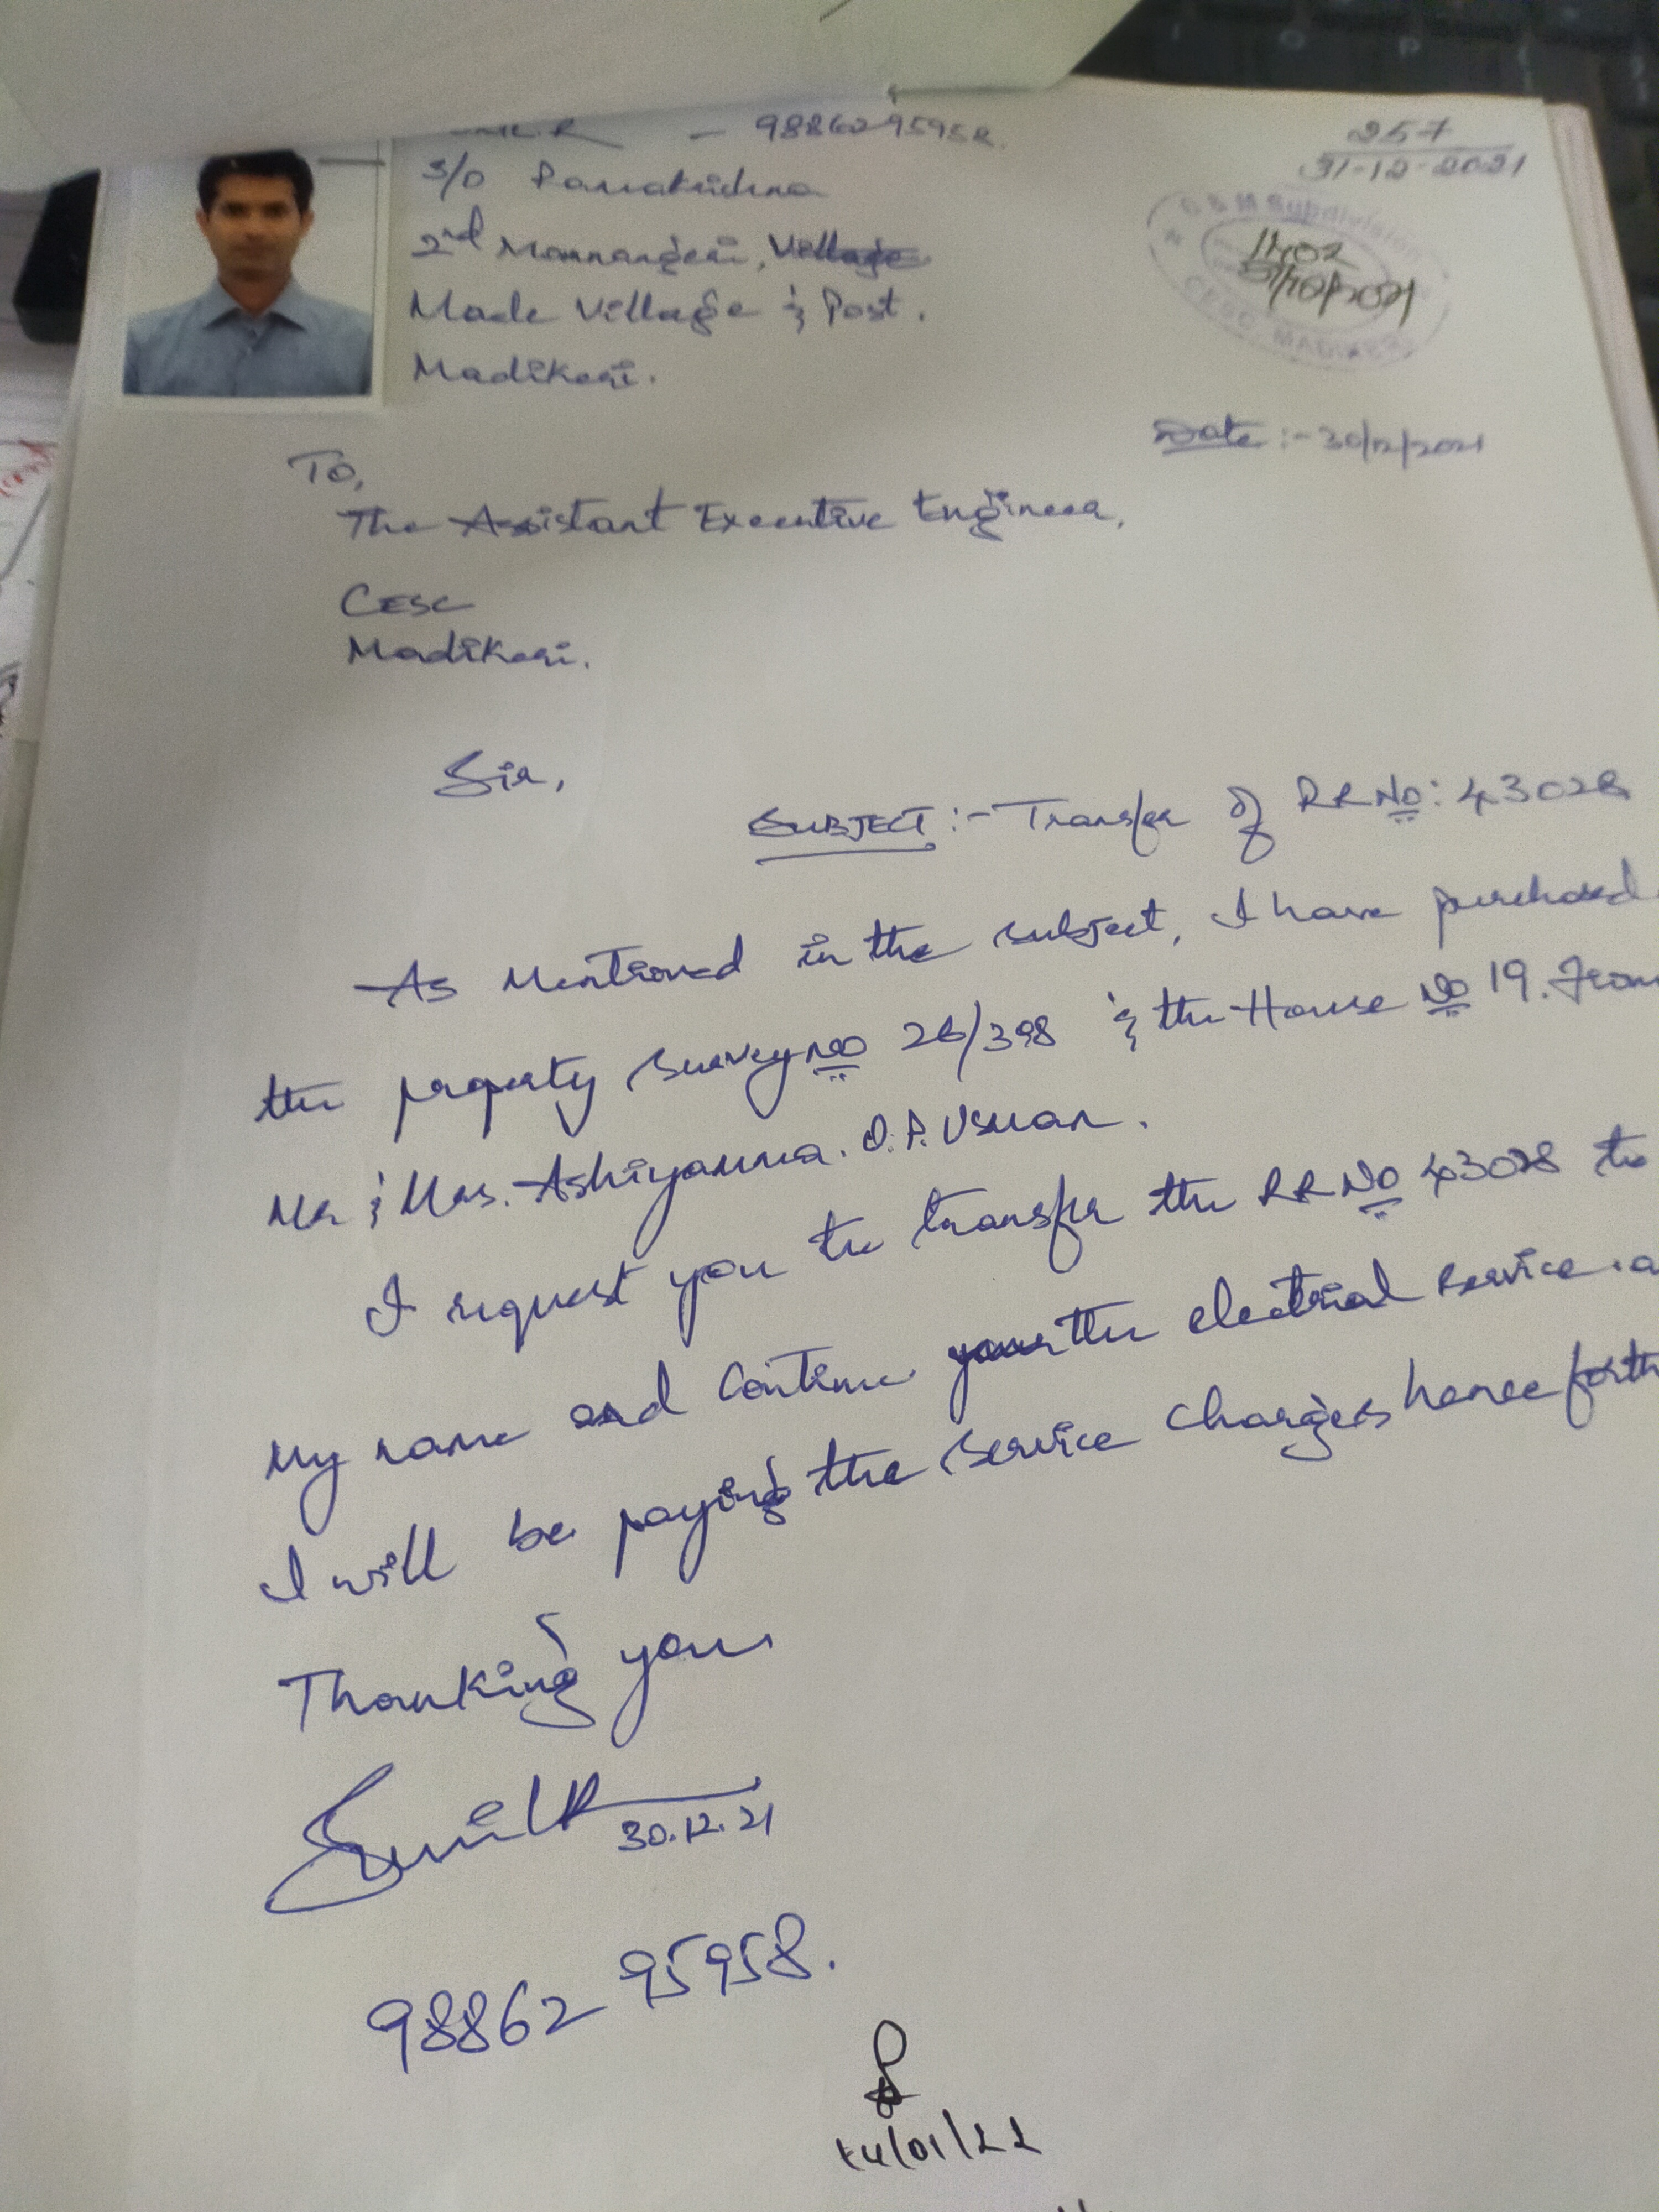 - 9886295958.
S/O Ramakrishna
2nd Monnangeri, Village
Made Village & Post.
Madikeri.
257
31-12-2021
O & M Subdivision
1402
31/12/2021
CESC MADIKERI
Date :- 30/12/2021
To,
The Assistant Executive Engineer,
CESC
Madikeri.
Sir,
SUBJECT :- Transfer of RR No: 43028
As Mentioned in the subject, I have purchased
the property Survey No 26/398 & the House No 19. From
Mr & Mrs. Ashiyamma. O.P. Usman.
I request you to transfer the RR No 43028 to
my name and Continue your the electrical service. a
I will be paying the service charges hence forth
Thanking you
Sunil R
30.12.21
98862 95958.
14/01/22